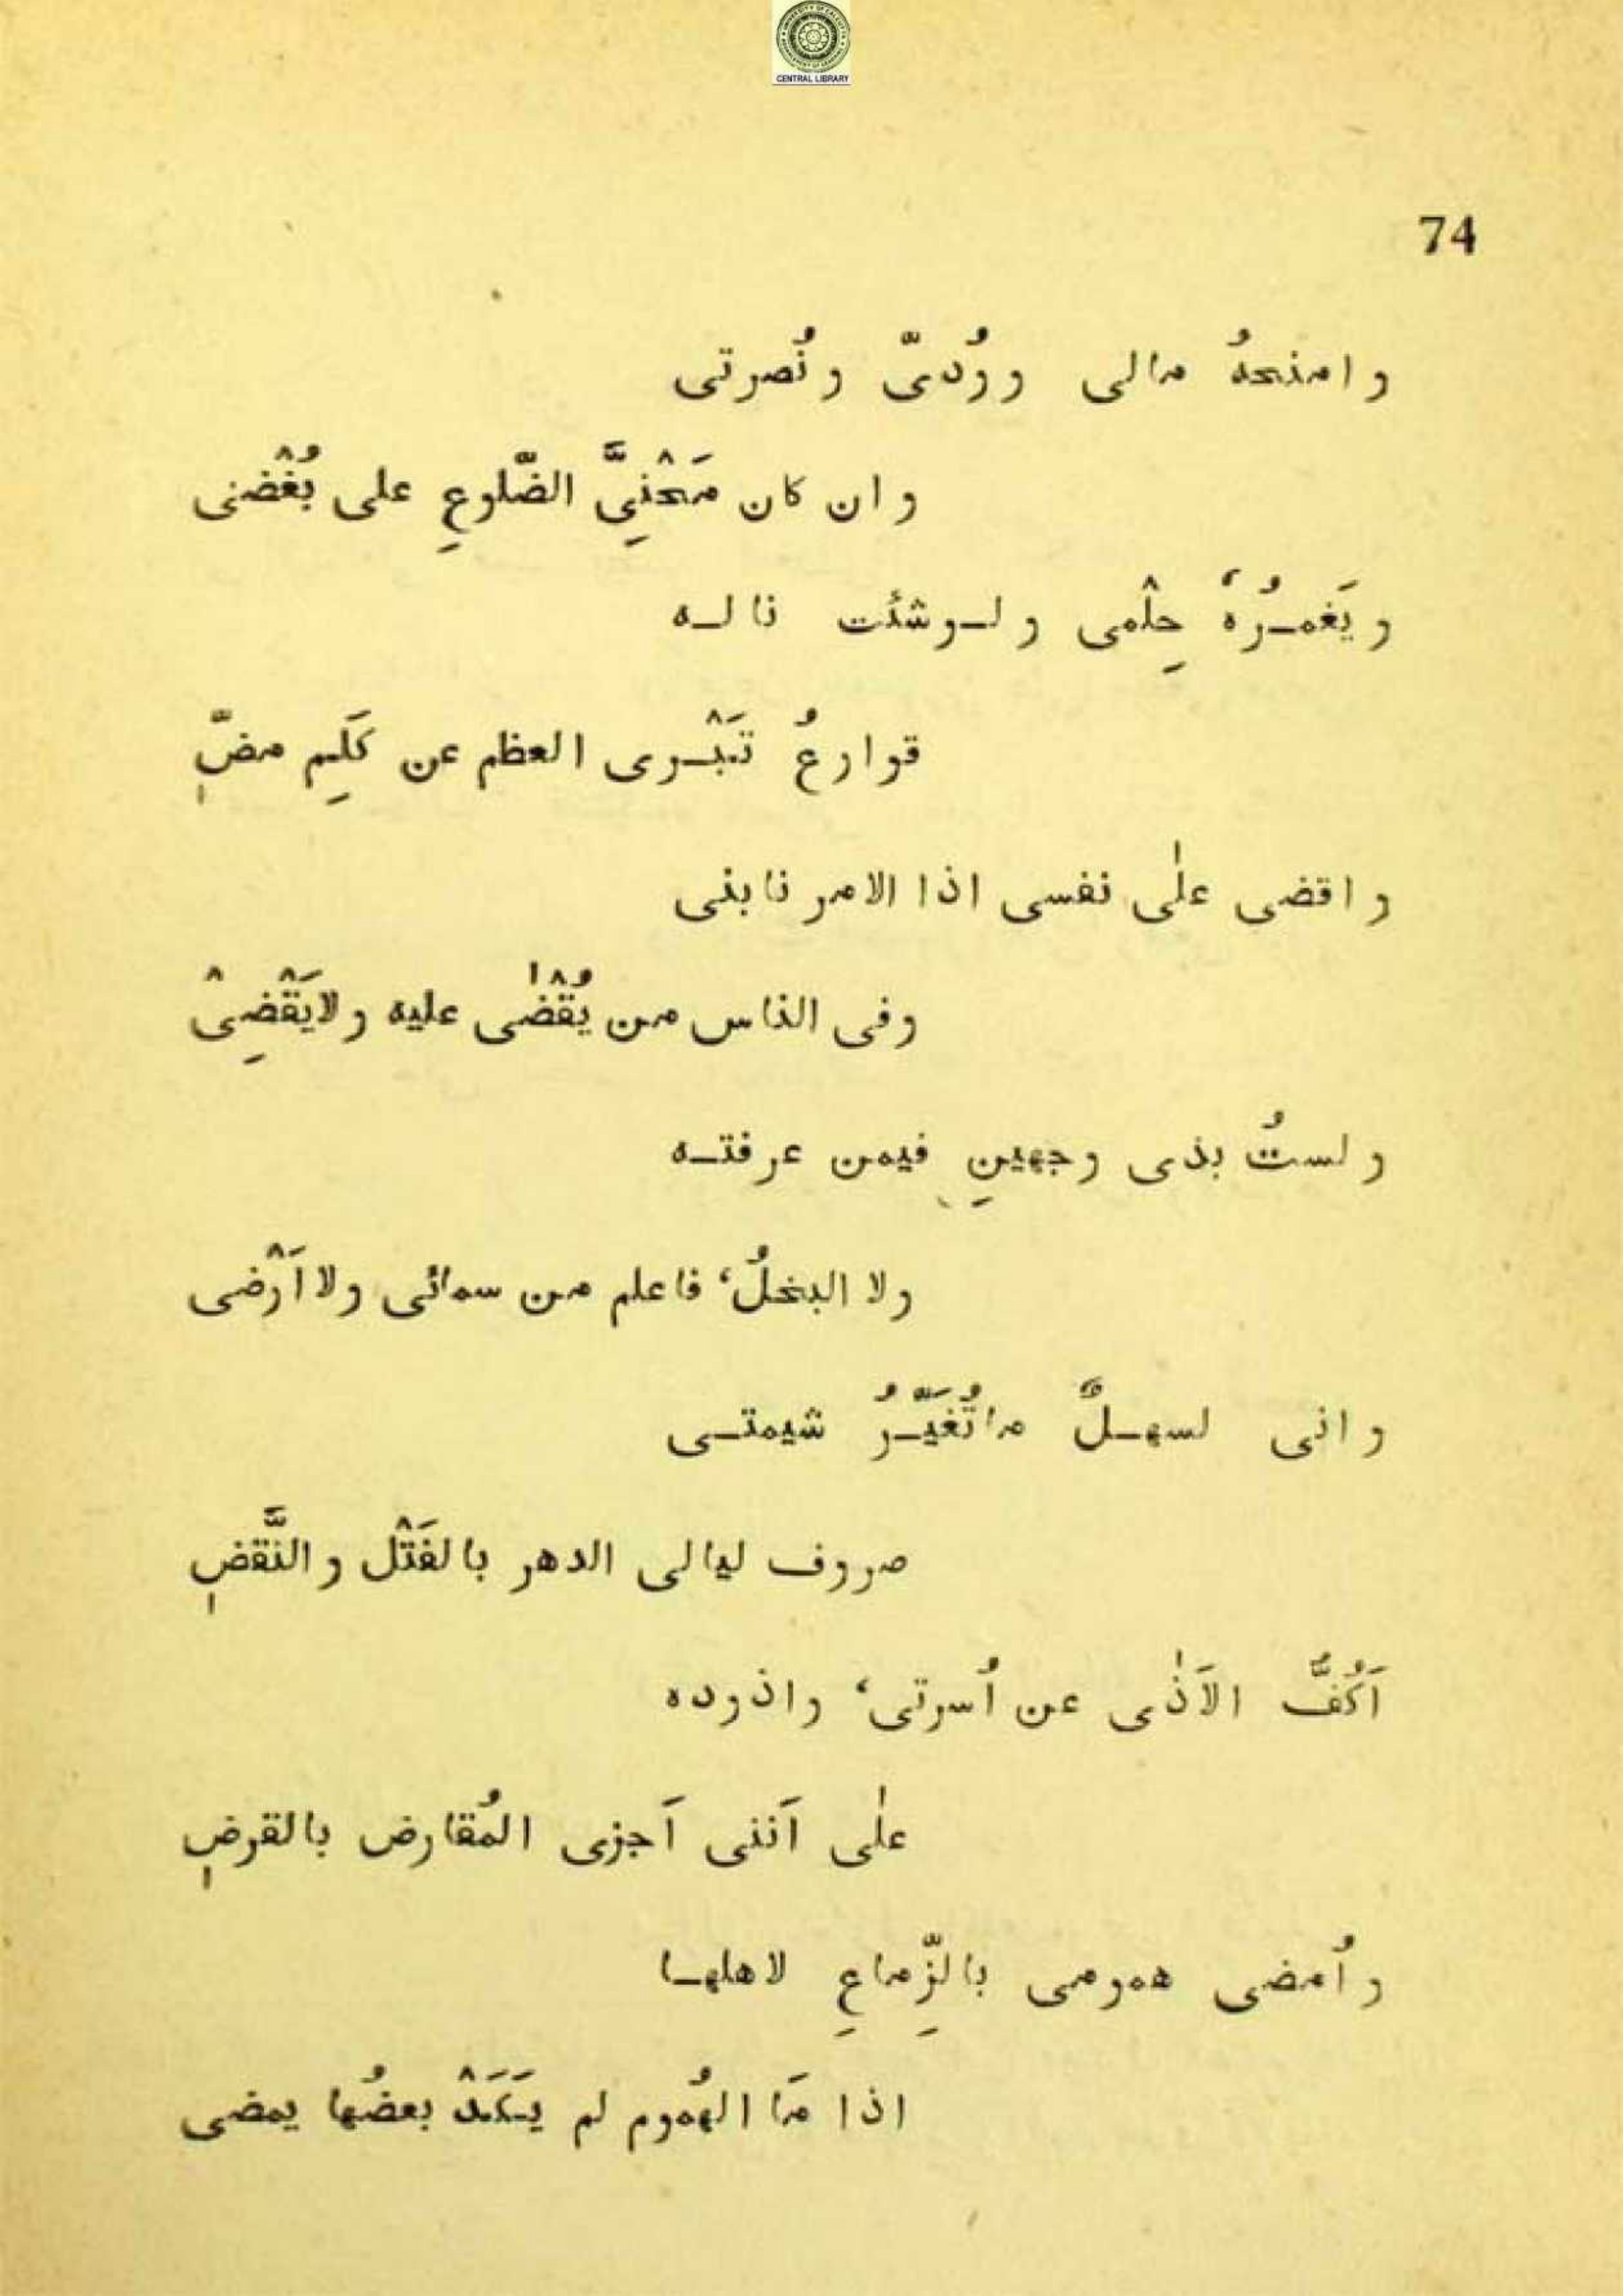 CENTRAL LIBRARY
74
و امنحهُ مالى و وُدىّ و نُصرتى
و ان كان مَحْنِىَّ الضّلوعِ على بُغْضى
و يَغمـرُهُ حِلْمى و لـو شئت نا لـه
قوارعُ تَبْـرى العظم عن كَلِم مضٍّ
و اقضى علٰى نفسى اذا الامر نابنى
وفى الناس من يُقْضٰى عليه ولايَقْضِىْ
ولستُ بذى وجهينِ فيمن عرفتـه
ولا البخلُ، فاعلم من سمائى ولا اَرْضى
وانى لسهـلٌ ماتُغَيّـرُ شيمتـى
صروف ليالى الدهر بالفَتْل والنَّقضِ
اَكُفُّ الاَذٰى عن اُسرتى، واذوده
علٰى اَننى اَجزى المُقارض بالقرضِ
واُمضى همومى بالزِّماعِ لاهلهـا
اذا مَا الهُموم لم يَـكَدْ بعضُها يمضى